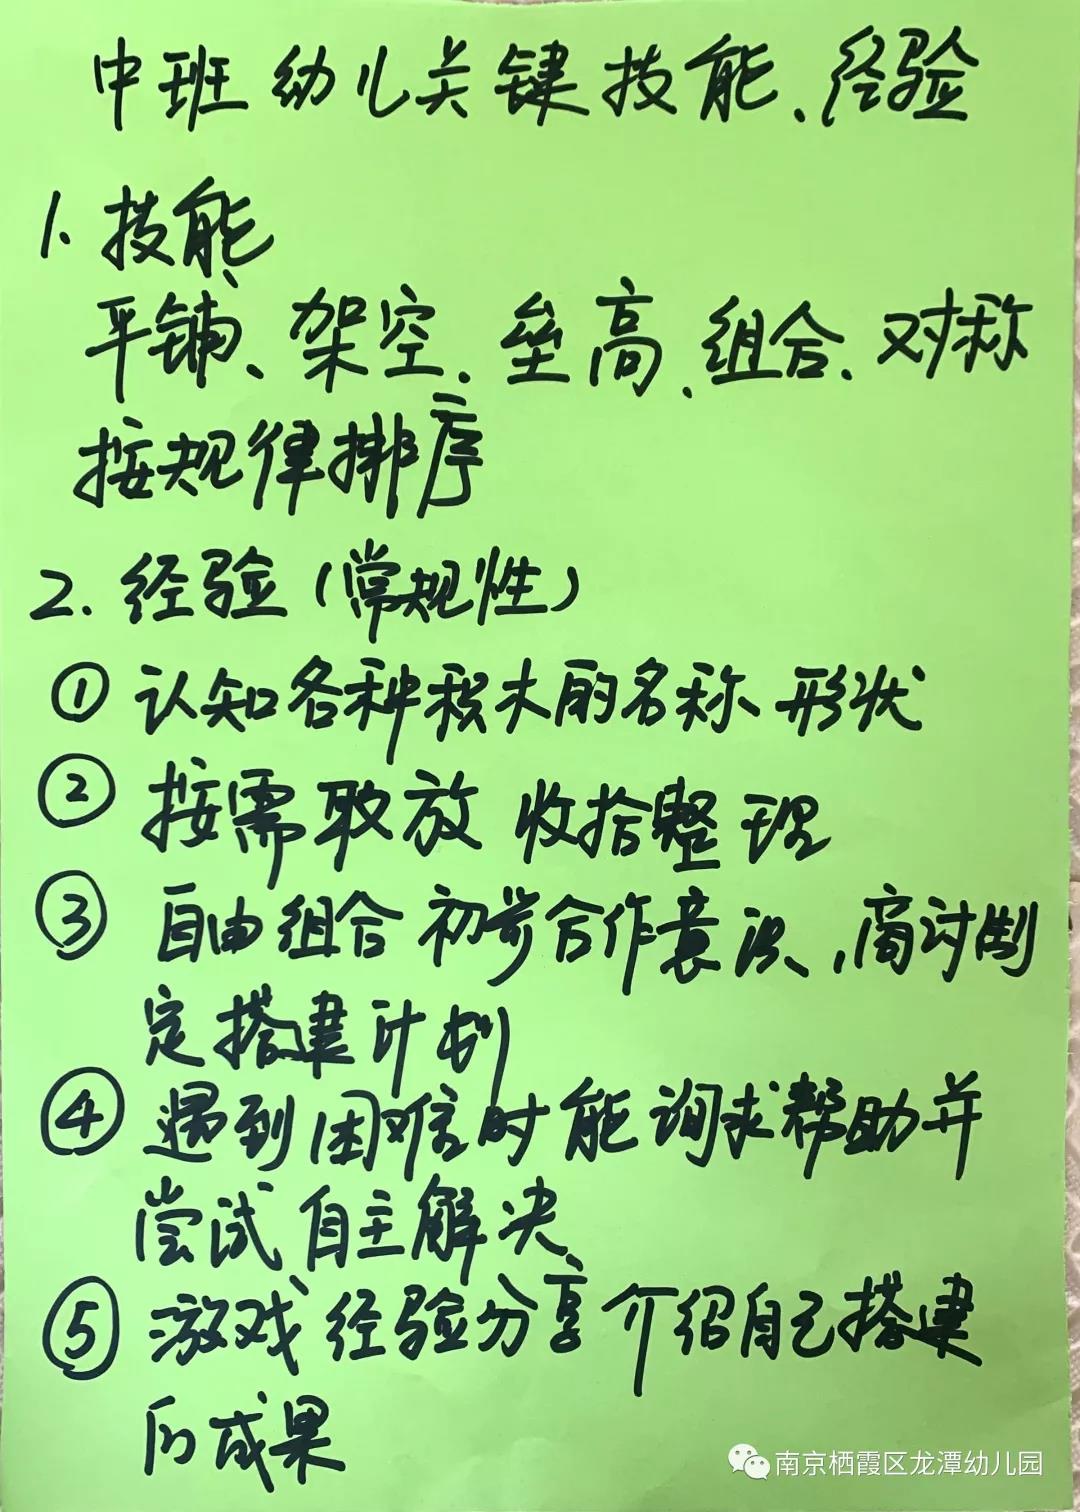 中班幼儿关键技能、经验
1. 技能
平铺、架空、垒高、组合、对称
按规律排序
2. 经验(常规性)
① 认知各种积木的名称 形状
② 按需取放 收拾整理
③ 自由组合 初步合作意识、商讨制
定搭建计划
④ 遇到困难时能询求帮助并
尝试自主解决
⑤ 游戏经验分享 介绍自己搭建
的成果
南京栖霞区龙潭幼儿园